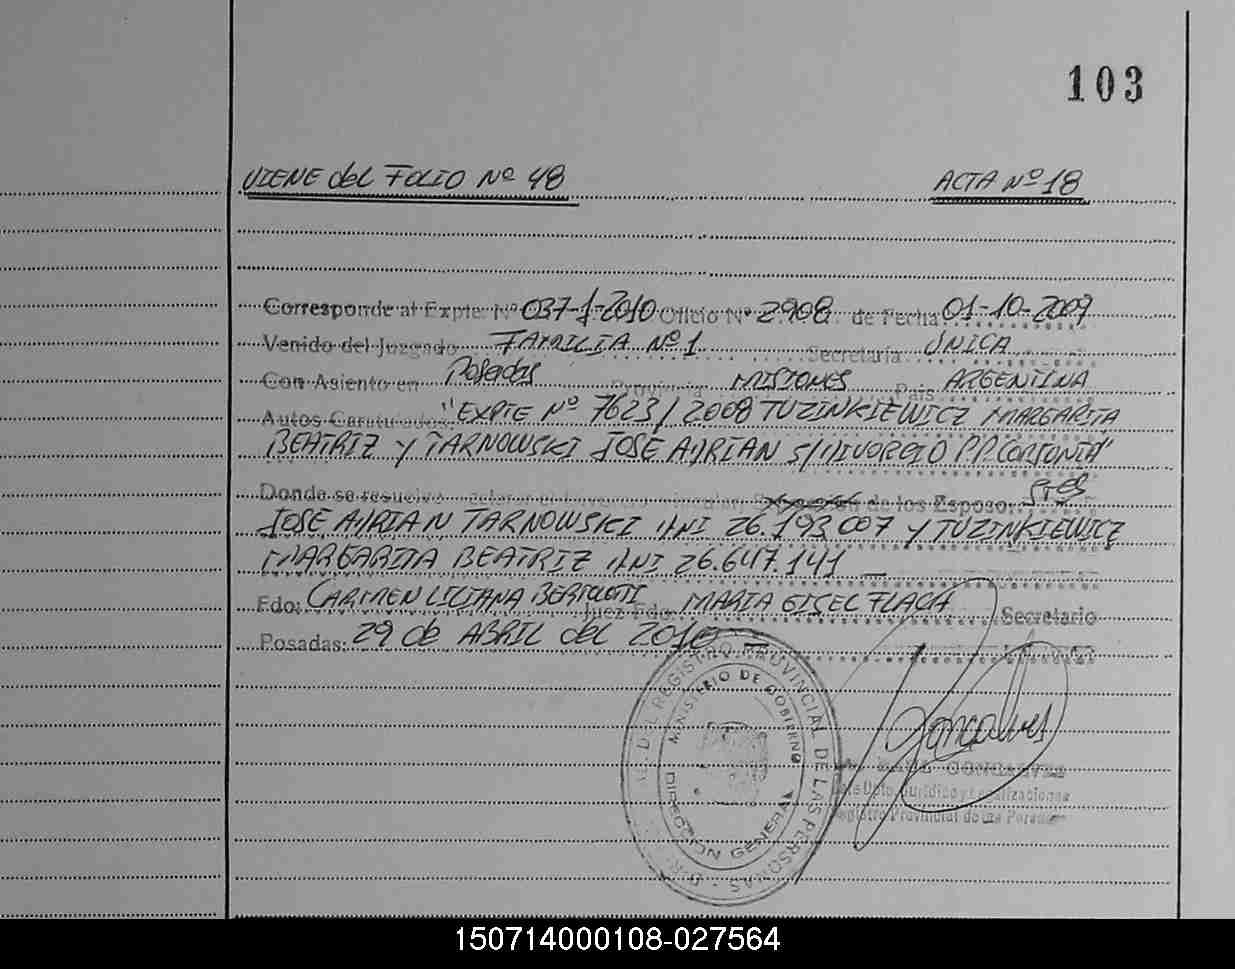 103
VIENE del FOLIO Nº 48
ACTA Nº 18
Corresponde al Expte. Nº 037-1-2010 Oficio Nº 2908 de Fecha 01-10-2009
Venido del Juzgado FAMILIA Nº 1 Secretaría UNICA
Con Asiento en Posadas Provincia MISIONES País ARGENTINA
Autos Caratulados "EXPTE Nº 7623/2008 TUZINKIEWICZ MARGARITA
BEATRIZ Y TARNOWSKI JOSE ADRIAN S/DIVORCIO P.P. CONJUNTA"
Donde se resuelve de los Esposo:
JOSE ADRIAN TARNOWSKI DNI 26.193.007 Y TUZINKIEWICZ
MARGARITA BEATRIZ DNI 26.647.141
Fdo: CARMEN LILIANA BERTOLOTTI Juez Fdo: MARIA GISEL FLACH Secretario
Posadas: 29 de ABRIL del 2010
REGISTRO PROVINCIAL DE LAS PERSONAS
MINISTERIO DE GOBIERNO
DIRECCION GENERAL
Goncalves
GONCALVES
Dpto. Jurídico y Legalizaciones
Registro Provincial de las Personas
150714000108-027564